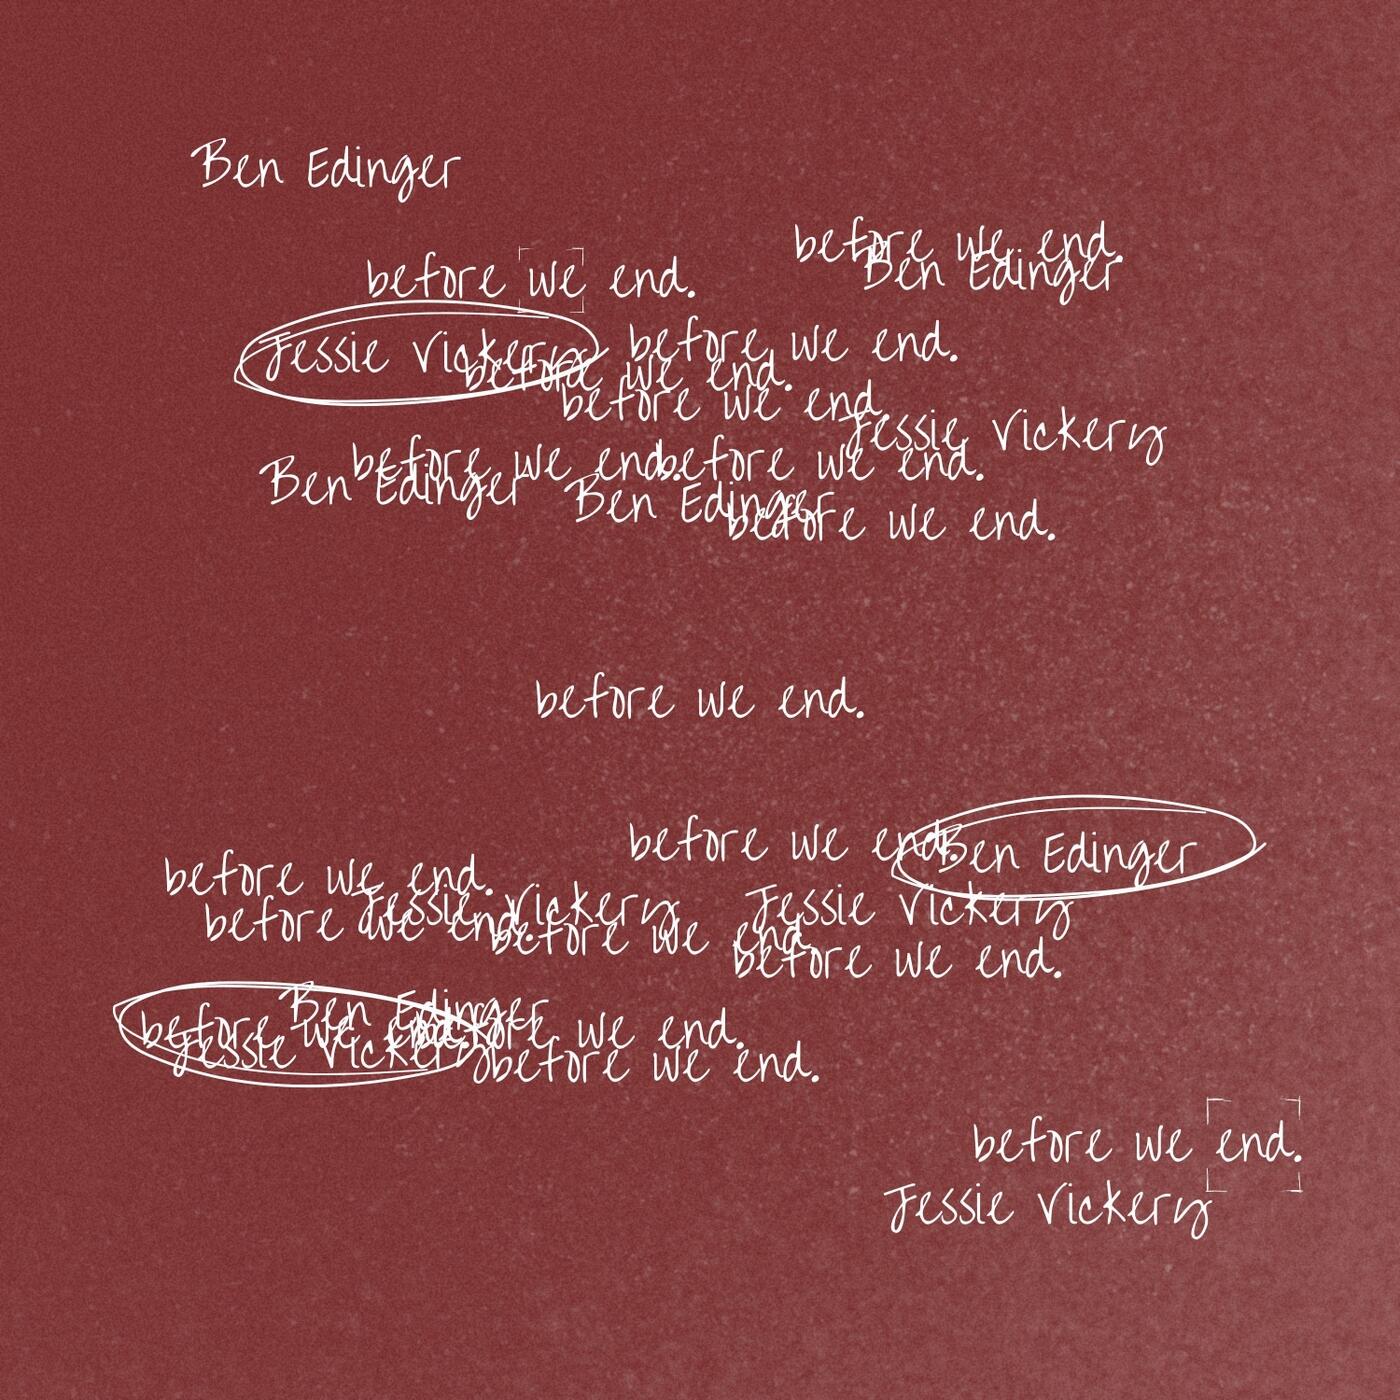 Ben Edinger
before we end.
Ben Edinger
before we end.
Jessie Vickery
before we end.
before we end.
before we end.
Jessie Vickery
before we end.
before we end.
Ben Edinger
Ben Edinger
before we end.
before we end.
before we end.
Ben Edinger
before we end.
Jessie Vickery
Jessie Vickery
before we end.
before we end.
before we end.
Ben Edinger
before we end.
before we end.
Jessie Vickery
before we end.
before we end.
Jessie Vickery